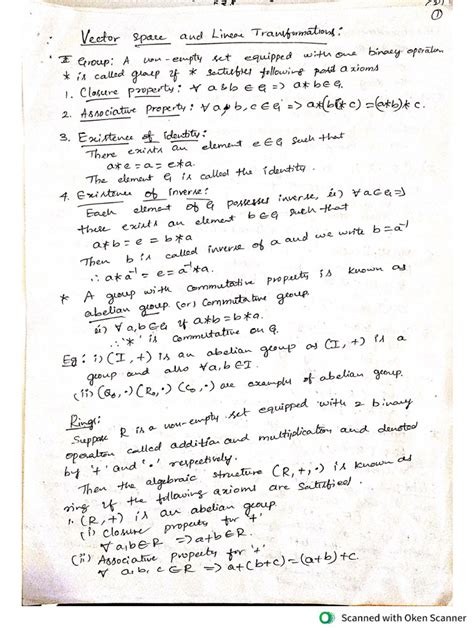 ①
Vector Space and Linear Transformations:
I Group: A non-empty set equipped with one binary operation
* is called group if * satisfies following axioms
1. Closure property: ∀ a&b ∈ G => a*b ∈ G.
2. Associative Property: ∀ a,b,c ∈ G => a*(b*c) = (a*b)*c.
3. Existence of identity:
There exists an element e∈G such that
a*e = a = e*a.
The element G is called the identity.
4. Existence of Inverse:
Each element of G possesses inverse, ie) ∀ a∈G =>
there exists an element b∈G such that
a*b = e = b*a
Then b is called inverse of a and we write b = a⁻¹
∴ a*a⁻¹ = e = a⁻¹*a.
* A group with commutative property is known as
abelian group (or) Commutative group.
ie) ∀ a,b∈G if a*b = b*a.
∴ '*' is commutative on G.
Eg: i) (I, +) is an abelian group as (I, +) is a
group and also ∀ a,b∈I.
(ii) (Q₀,·) (R₀,·) (C₀,·) are example of abelian group.
Rings:
Suppose R is a non-empty set equipped with 2 binary
operation called addition and multiplication and denoted
by '+' and '·' respectively.
Then the algebraic structure (R, +, ·) is known as
ring if the following axioms are satisfied.
1. (R, +) is an abelian group.
(i) Closure property for '+'
∀ a,b∈R => a+b∈R.
(ii) Associative Property for '+'
∀ a,b,c∈R => a+(b+c) = (a+b)+c.
Scanned with Oken Scanner